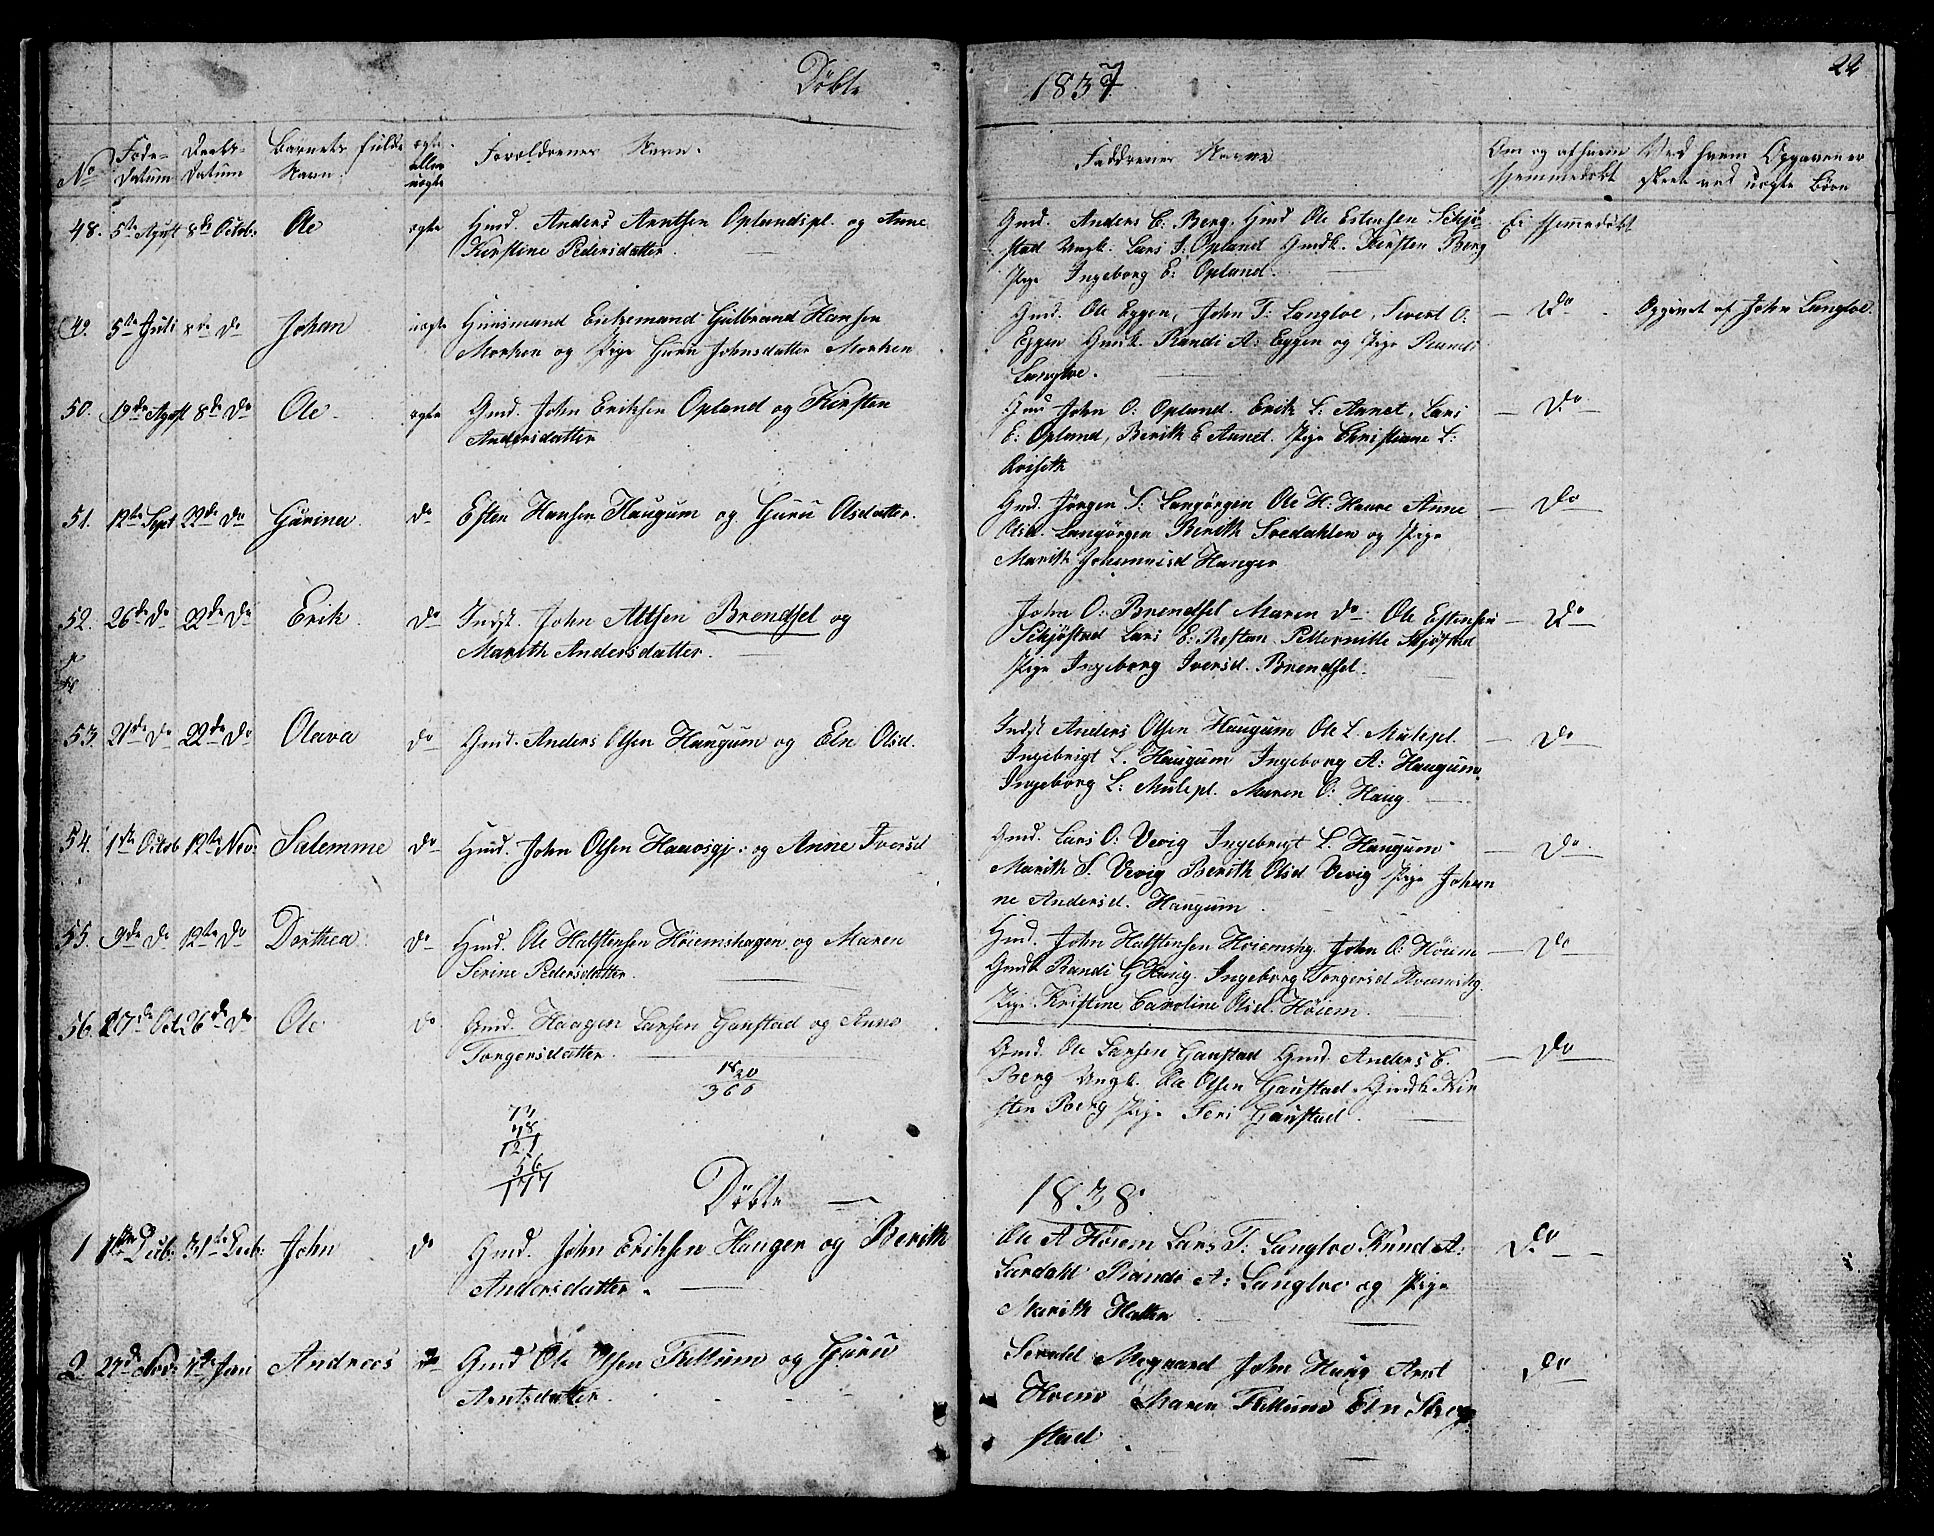 Døbte
1837
22
No
Føde-
Datum
Daabs-
Datum
Barnets fulde
Navn
ægte
eller
uægte
Forældrenes Navn.
Faddrenes Navne
Om og af hvem
hjemmedøbt
Ved hvem Opgaven er
skeet ved uægte Børn
48. 5te Agust 8de Octob: Ole ægte Hmd. Anders Arntsen Oplandspl. og Anne
Kirstine Pedersdatter.
Gmd. Anders E: Berg, Hmd Ole Estensen Schjø-
stad Ungk. Lars J: Opland Gmdk. Kirsten Berg
Pige Ingeborg E: Opland.
Ei Hjemmedøbt
49. 5te Juli 8de do Johan uægte Huusmand Enkemand Gulbrand Hansen
Morken og Pige Guru Johnsdatter Morken
Gmd. Ole Eggen, John T: Langloe, Sivert O:
Eggen Gmdk. Randi A: Eggen og Pige Randi
Langloe.
Do
Opgivet af John Langloe
50. 19de Agust 8de do Ole ægte Gmd. John Eriksen Opland og Kirsten
Andersdatter
John O: Opland. Erik L: Aunet, Lars
E: Opland, Berith E Aunet. Pige Christiane L:
Kviseth
Do
51. 12te Sept 22de do Gurine do Esten Hansen Haugum og Guru Olsdatter.
Gmd. Jørgen S: Langørgen Ole H: Haave Anne
Olsd. Langørgen Berith Svedahlen og Pige
Marith Johannisd Hanger
Do
52. 26de do 22de do Erik do Indst. John Altsen Brendsel og
Marith Andersdatter.
John O: Brendsel Maren do Ole Estensen
Schjøstad Lars E: Restan Petternille Skjøstad
Pige Ingeborg Iversd. Brendsel.
Do
53. 21de do 22de do Olava do Gmd. Anders Olsen Haugum og Eln Olsd.
Indst Anders Olsen Haugum Ole L. Mulepl.
Ingebrigt L. Haugum Ingeborg A: Haugum
Ingeborg L: Mulepl. Maren O: Haug.
Do
54. 1ste Octob 12te Nov: Salemme do Hmd. John Olsen Haavsgj: og Anne Iversd
Gmd. Lars O: Vevig Ingebrigt L. Haugum
Marith S. Vevig Berith Olsd Vevig Pige Johan
ne Andersd. Haugum.
Do
55. 9de do 12te do Dorthea do Hmd. Ole Halstensen Høiemshagen og Maren
Serine Pedersdatter.
Hmd. John Halstensen Høiemshg. John O: Høiem
Gmdk Randi G Haug. Ingeborg Torgersd Høiemshg.
Pige Kristine Caroline Olsd. Høiem.
Do
56. 17de Oct. 26de do Ole do Gmd. Haagen Larsen Gaustad og Anne
Torgersdatter.
Gmd. Ole Larsen Gaustad Gmd. Anders E.
Berg Ungk. Ole Olsen Gaustad. Gmdk Kir
sten Berg Pige Seri Gaustad.
Do
360
73
48
121
56
177
Døbte
1838.
1 1ste Decb: 31te Decb: John do Gmd. John Eriksen Hanger og Berith
Andersdatter.
Ole A Høiem Lars T: Langloe Knud A:
Lerdahl Randi A: Langloe og Pige
Marith Hatten
Do
2 27de Nov: 1ste Jan Andreas do Gmd Ole Olsen Tellum og Guru
Arntsdatter.
Sivald Megaard John Haug Arnt
Hoem Maren Tellum Eln Skog
stad.
Do